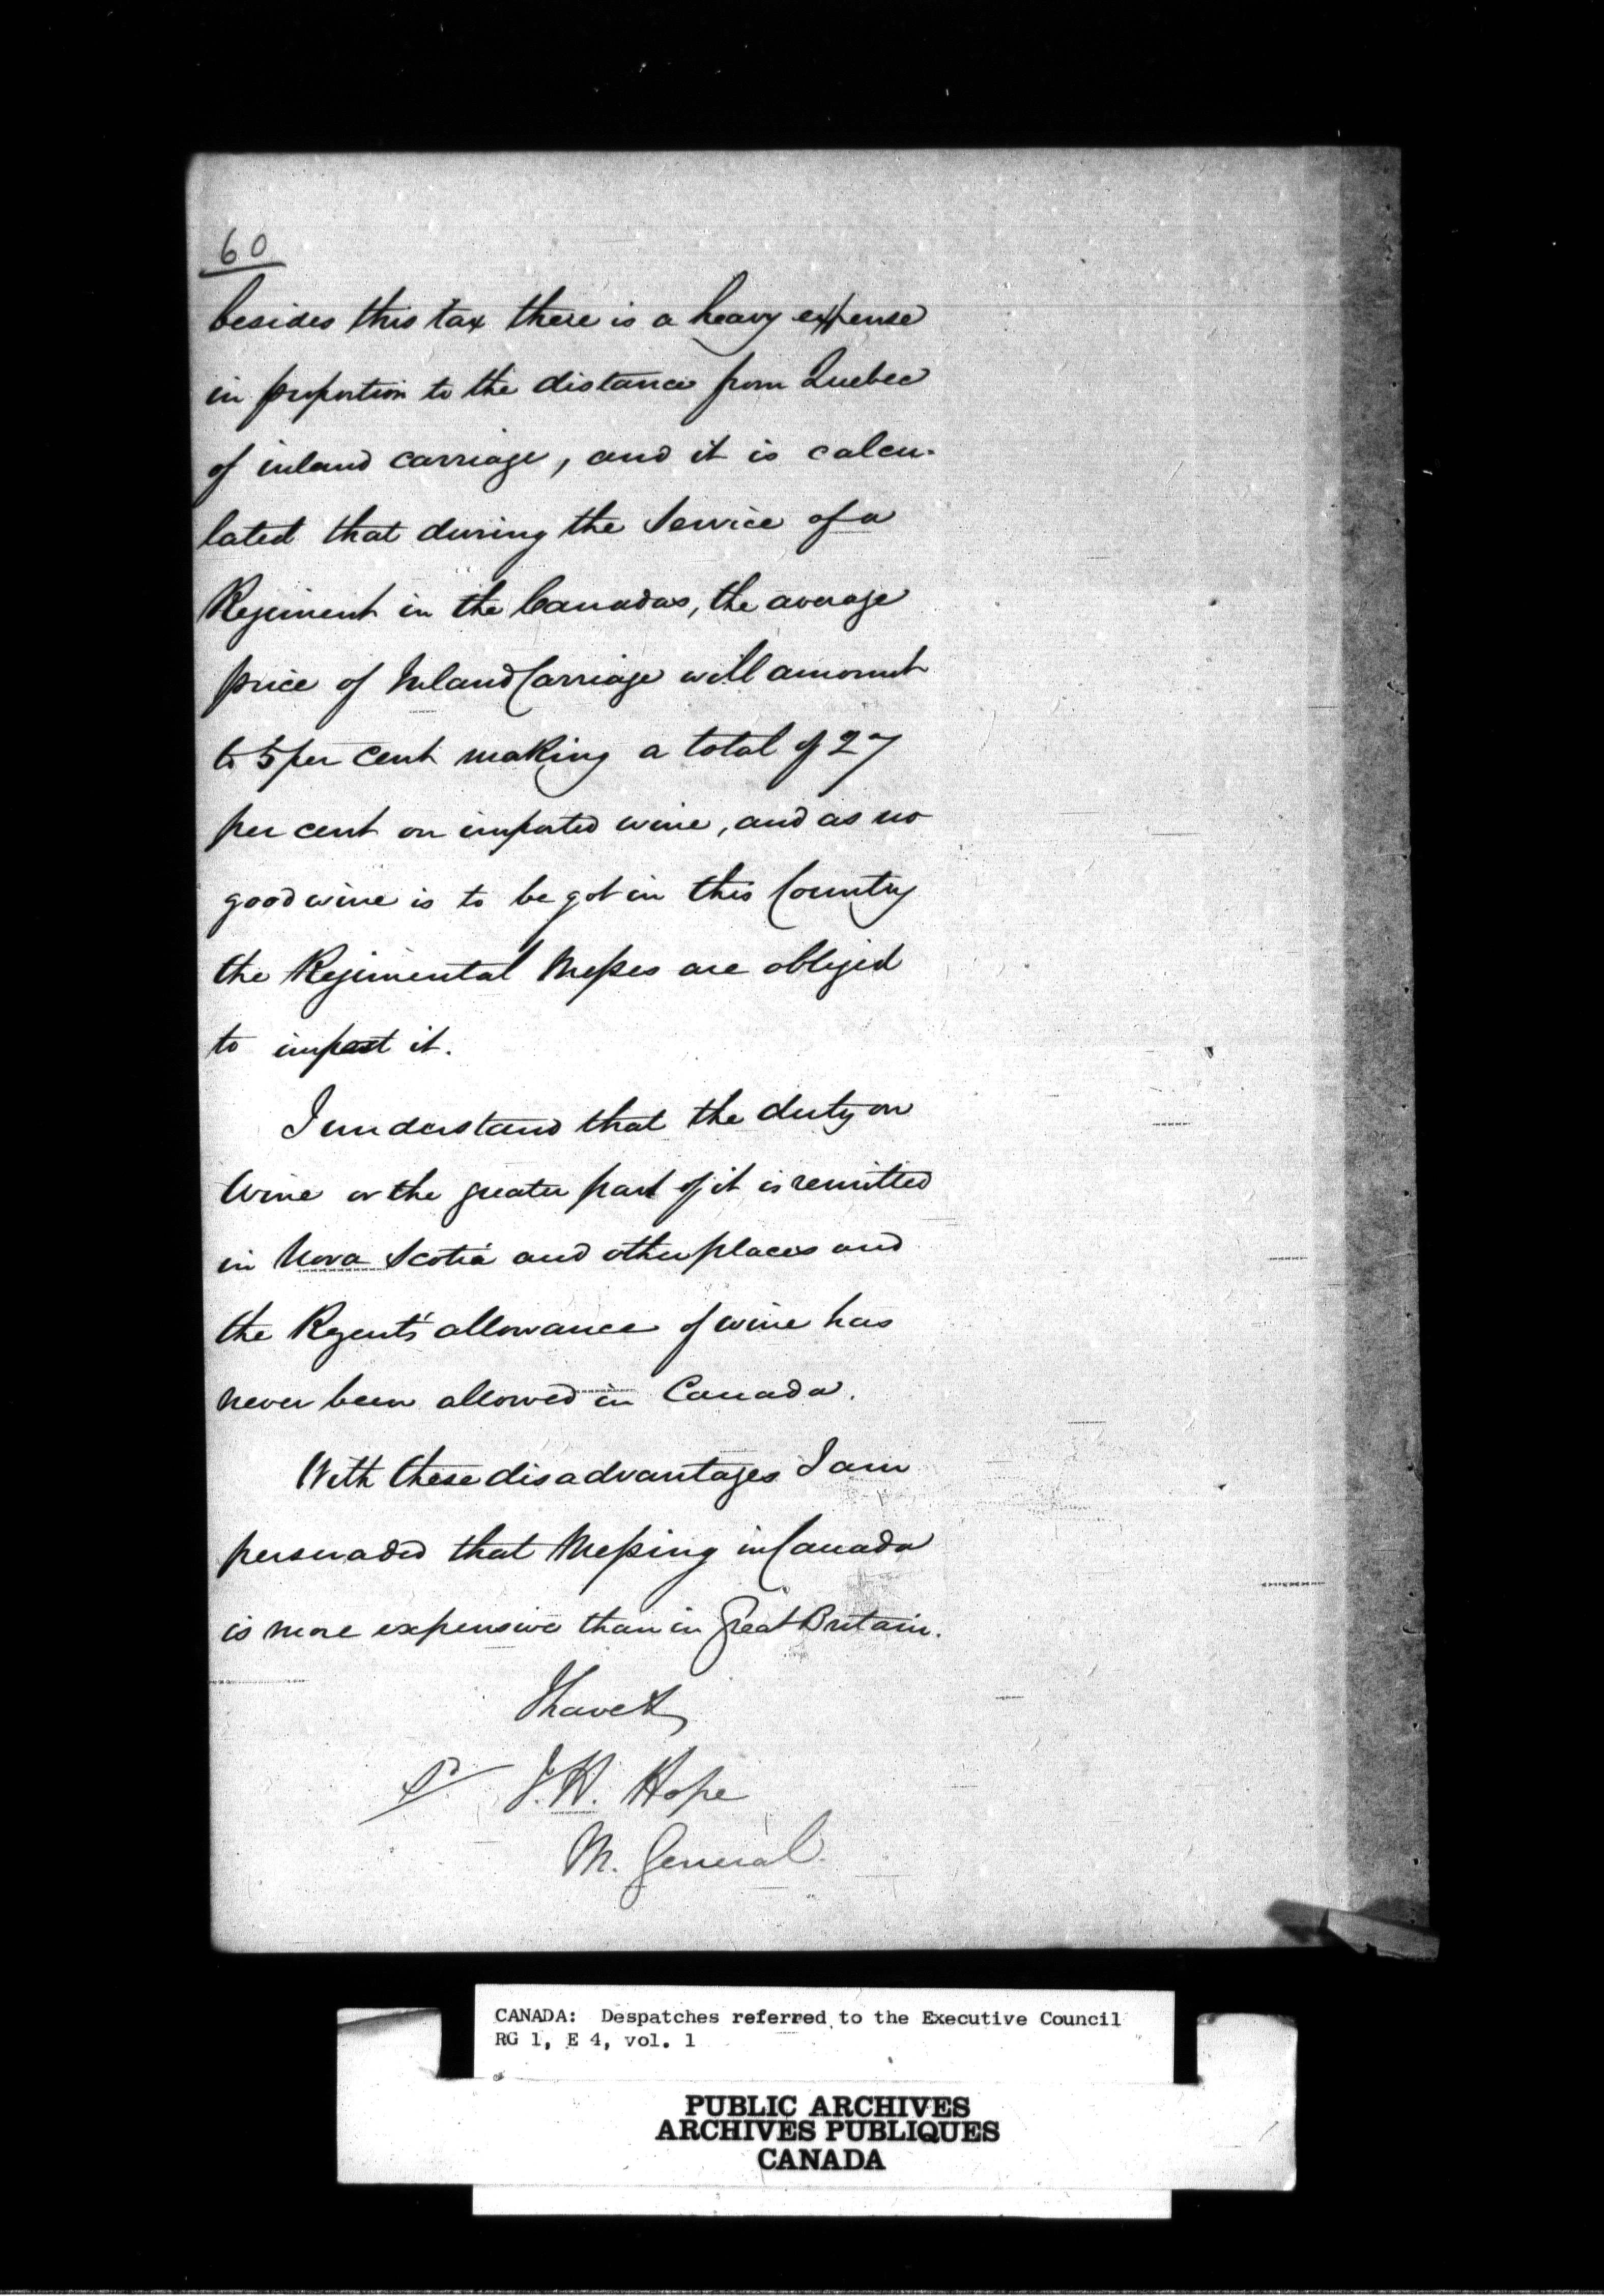 60
besides this tax there is a heavy expense
in proportion to the distance from Quebec
of inland carriage, and it is calcu-
lated that during the Service of a
Regiment in the Canadas, the average
price of Inland Carriage will amount
to 5 per cent making a total of 27
per cent on imported wine, and as no
good wine is to be got in this Country
the Regimental Messes are obliged
to import it.
I understand that the duty on
Wine or the greater part of it is remitted
in Nova Scotia and other places and
the Regent's allowance of wine has
never been allowed in Canada.
With these disadvantages I am
persuaded that Messing in Canada
is more expensive than in Great Britain.
I have &
J. H. Hope
M. General.
CANADA: Despatches referred to the Executive Council
RG 1, E 4, vol. 1
PUBLIC ARCHIVES
ARCHIVES PUBLIQUES
CANADA